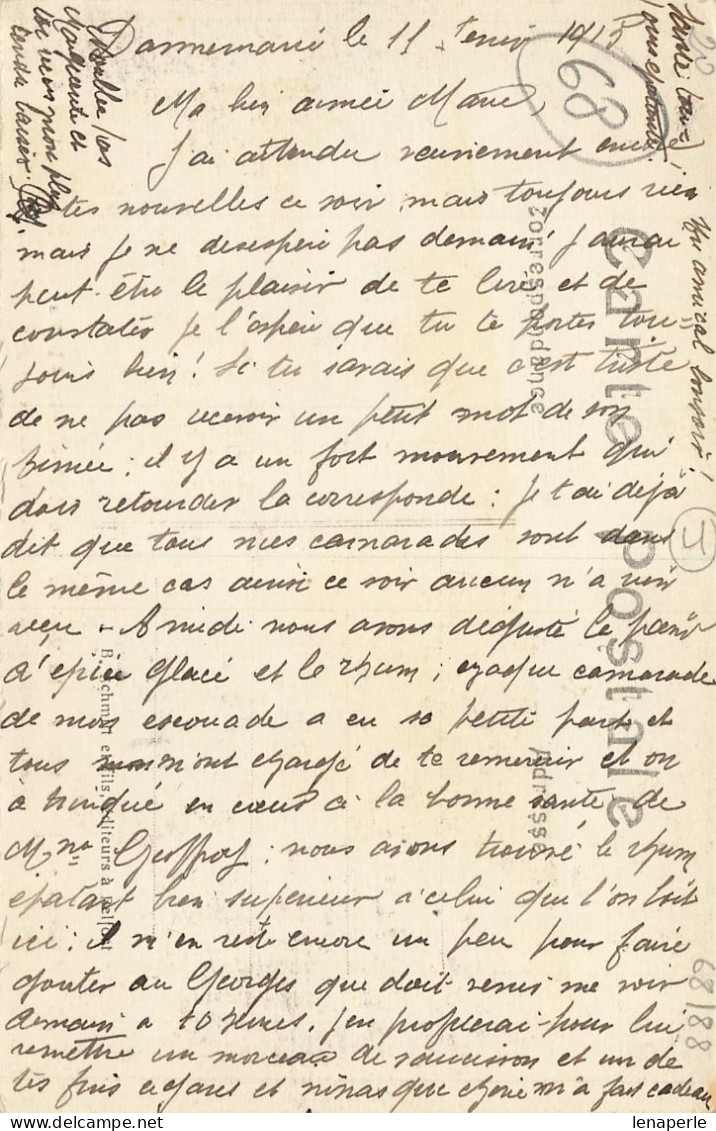 Dannemarie le 11 fevrier 1915
Ma bien aimée Marie,
J'ai attendu vainement encore
tes nouvelles ce soir, mais toujours rien
mais je ne desespère pas demain j'aurai
peut-être le plaisir de te lire et de
constater je l'espère que tu te portes tou=
jours bien! Si tu savais que c'est triste
de ne pas recevoir un petit mot de son
aimée; il y a un fort mouvement qui
dois retarder la corresponde: Je t'ai déjà
dit que tous mes camarades sont dans
le même cas aussi ce soir aucun n'a rien
reçu - A midi nous avons dégusté le pain
d'épice glacé et le rhum; chaque camarade
de mon escouade a eu sa petite part et
tous m'ont chargé de te remercier et on
à trinqué en cœur à la bonne santé de
Mme Geoffroy; nous avons trouvé le rhum
épatant bien supérieur à celui que l'on boit
ici; il m'en reste encore un peu pour faire
gouter au Georges que doit venir me voir
demain à 10 heures. j'en profiterai pour lui
remettre un morceau de saucisson et un de
tes fins cigares et ninas que chérie m'a fait cadeau
Mon amical bonsoir!
68
4
68/88
20
Carte postale
Correspondance
Adresse
et fils, éditeurs à Belfort
lenaperle.com